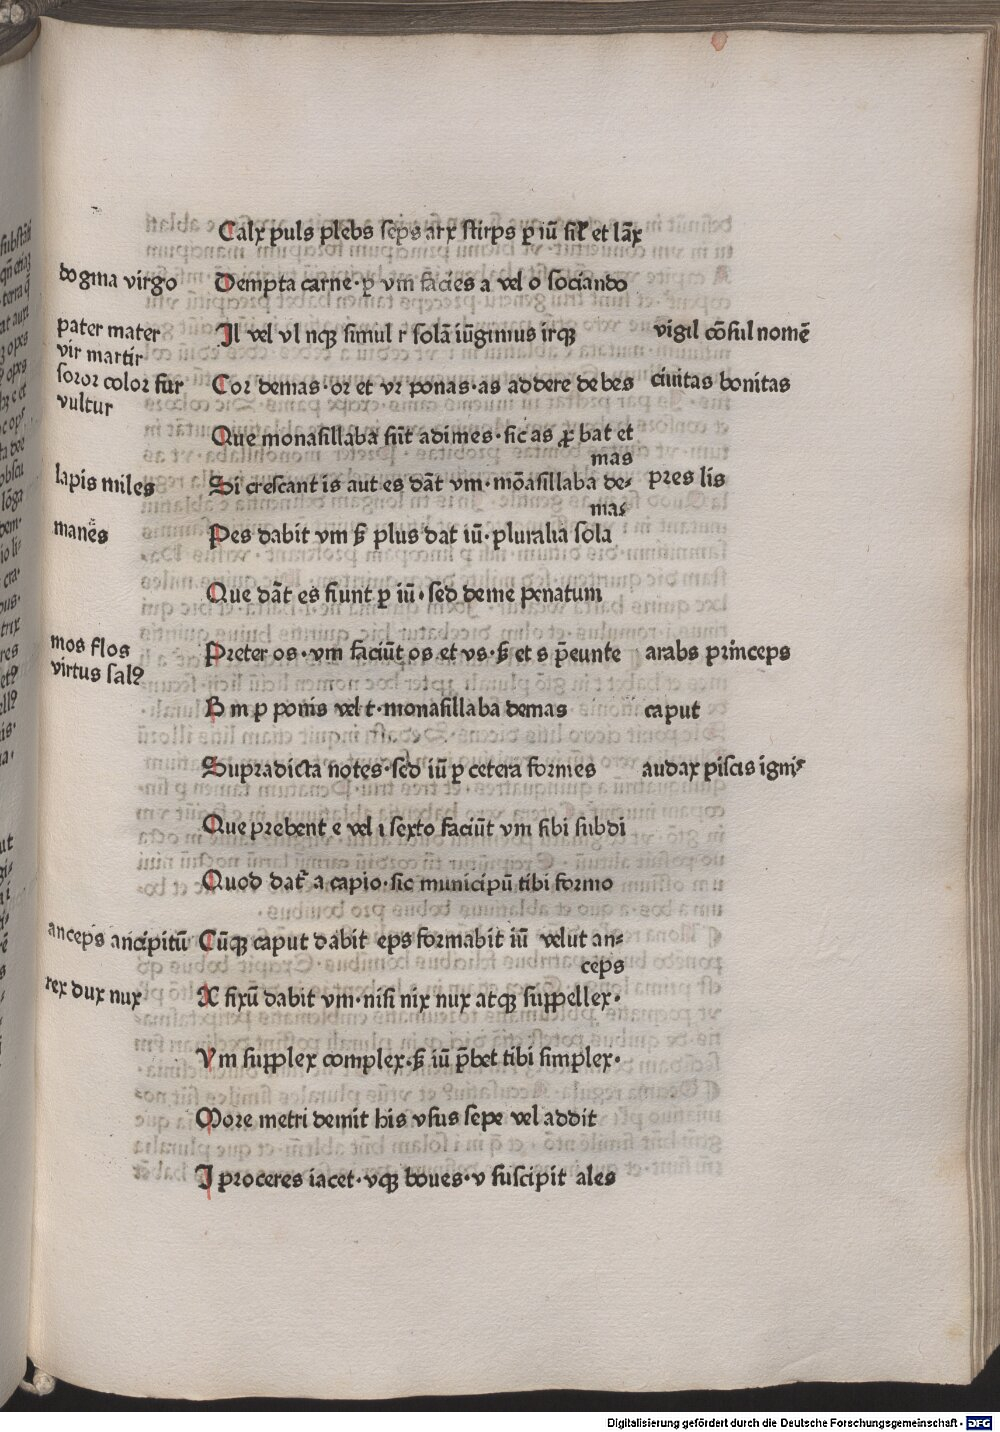 Calx puls plebs seps arx stirps ꝑ iū sil' et lāx
dogma virgo
Dempta carne·ꝑ vm facies a vel o sociando
pater mater
vir martir
Il vel vl ncꝫ simul r solā iūgimus irqꝫ
vigil cōsul nomē
soror color fur
vultur
Cor demas·or et vr ponas·as addere debes
ciuitas bonitas
Que monasillaba siūt adimes·sic as ꝓbat et
mas
lapis miles
Si crescant is aut es dāt vm·mōasillaba de⸗
mas
pres lis
manes
Pes dabit vm sꝫ plus dat iū·pluralia sola
Que dāt es fiunt ꝑ iū·sed deme penatum
mos flos
virtus sal?
Preter os·vm faciūt os et vs·sꝫ et s p̄eunte
arabs princeps
B m p ponis vel t·monasillaba demas
caput
Supradicta notes·sed iū ꝑ cetera formes
audax piscis ignis
Que prebent e vel i sexto faciūt vm sibi subdi
Quod dat a capio·sic municipū tibi formo
anceps ancipitū
Cūqꝫ caput dabit eps formabit iū velut an⸗
ceps
rex dux nux
X fixū dabit vm·nisi nix nux atqꝫ suppellex·
Vm supplex complex·sꝫ iū p̄bet tibi simplex·
More metri demit his vsus sepe vel addit
I proceres iacet·vqꝫ boues·v suscipit ales
Digitalisierung gefördert durch die Deutsche Forschungsgemeinschaft · DFG